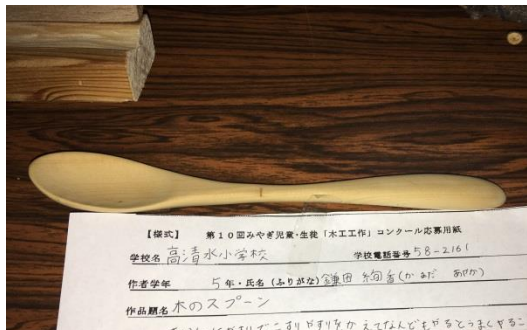 【様式】 第10回みやぎ児童・生徒「木工工作」コンクール応募用紙
学校名 高清水小学校 学校電話番号 58-2161
作者学年 5年・氏名(ふりがな) 鎌田 絢香(かまだ あやか)
作品題名 木のスプーン